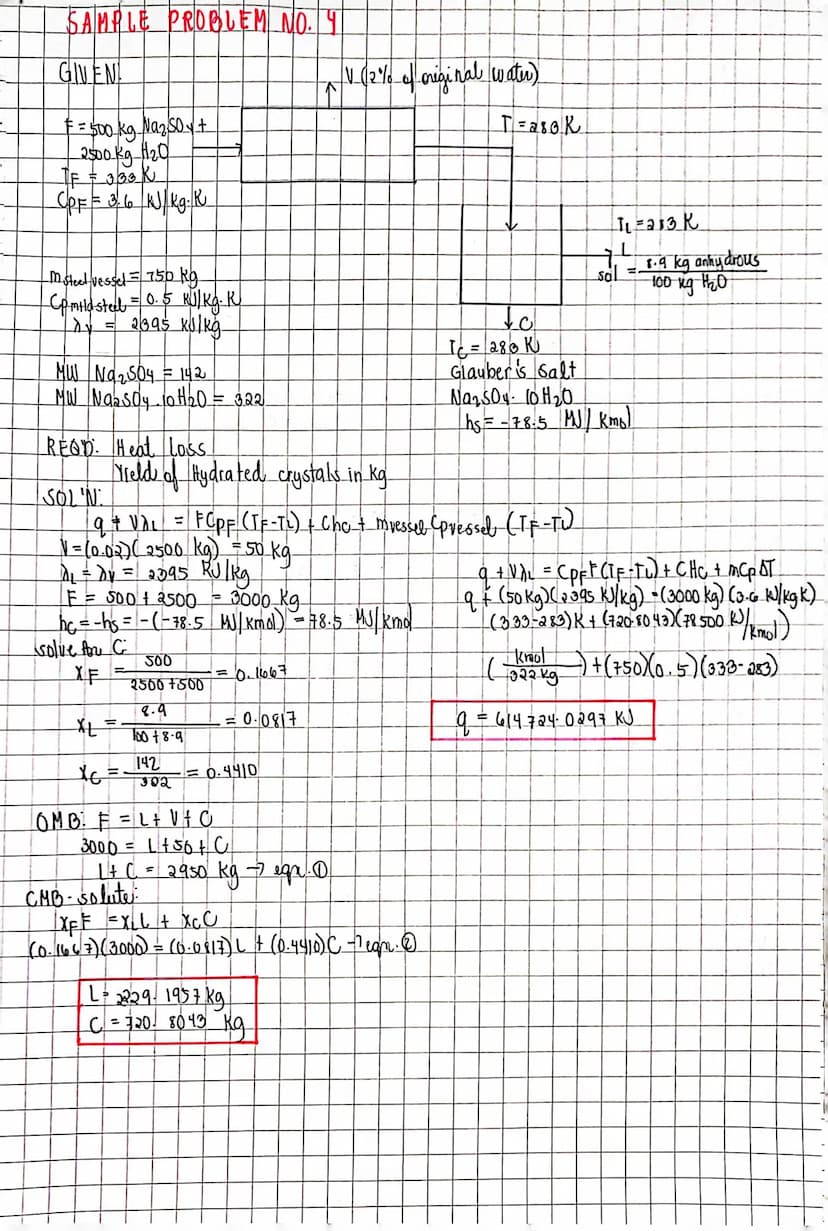 SAMPLE PROBLEM NO. 4
GIVEN:
V (2% of original water)
F = 500 kg Na2SO4 +
2500 kg H2O
TF = 333 K
CPF = 3.6 KJ/kg·K
T = 283 K
TL = 283 K
L
sol = 8.9 kg anhydrous / 100 kg H2O
m steel vessel = 750 kg
Cp mild steel = 0.5 KJ/kg·K
λv = 2395 KJ/kg
C
TC = 283 K
Glauber's salt
Na2SO4 · 10H2O
hs = -78.5 MJ/kmol
MW Na2SO4 = 142
MW Na2SO4 · 10H2O = 322
REQD: Heat Loss
Yield of Hydrated crystals in kg
SOL'N:
q + VλL = FCPF (TF-TL) + Chc + mvessel Cpvessel (TF-TL)
V = (0.02)(2500 kg) = 50 kg
λL = λv = 2395 KJ/kg
F = 500 + 2500 = 3000 kg
hc = -hs = -(-78.5 MJ/kmol) = 78.5 MJ/kmol
solve for C:
XF = 500 / 2500 + 500 = 0.1667
XL = 8.9 / 100 + 8.9 = 0.0817
XC = 142 / 322 = 0.4410
OMB: F = L + V + C
3000 = L + 50 + C
L + C = 2950 kg → eqn. ①
CMB-solute:
XFF = XLL + XCC
(0.1667)(3000) = (0.0817)L + (0.4410)C → eqn. ②
L = 2229.1957 kg
C = 720.8043 kg
q + VλL = CPFF(TF-TL) + CHc + mCpΔT
q + (50 kg)(2395 KJ/kg) = (3000 kg)(3.6 KJ/kgK)
(333-283)K + (720.8043)(78 500 KJ/kmol)
(kmol / 322 kg) + (750)(0.5)(333-283)
q = 614 724.0297 KJ